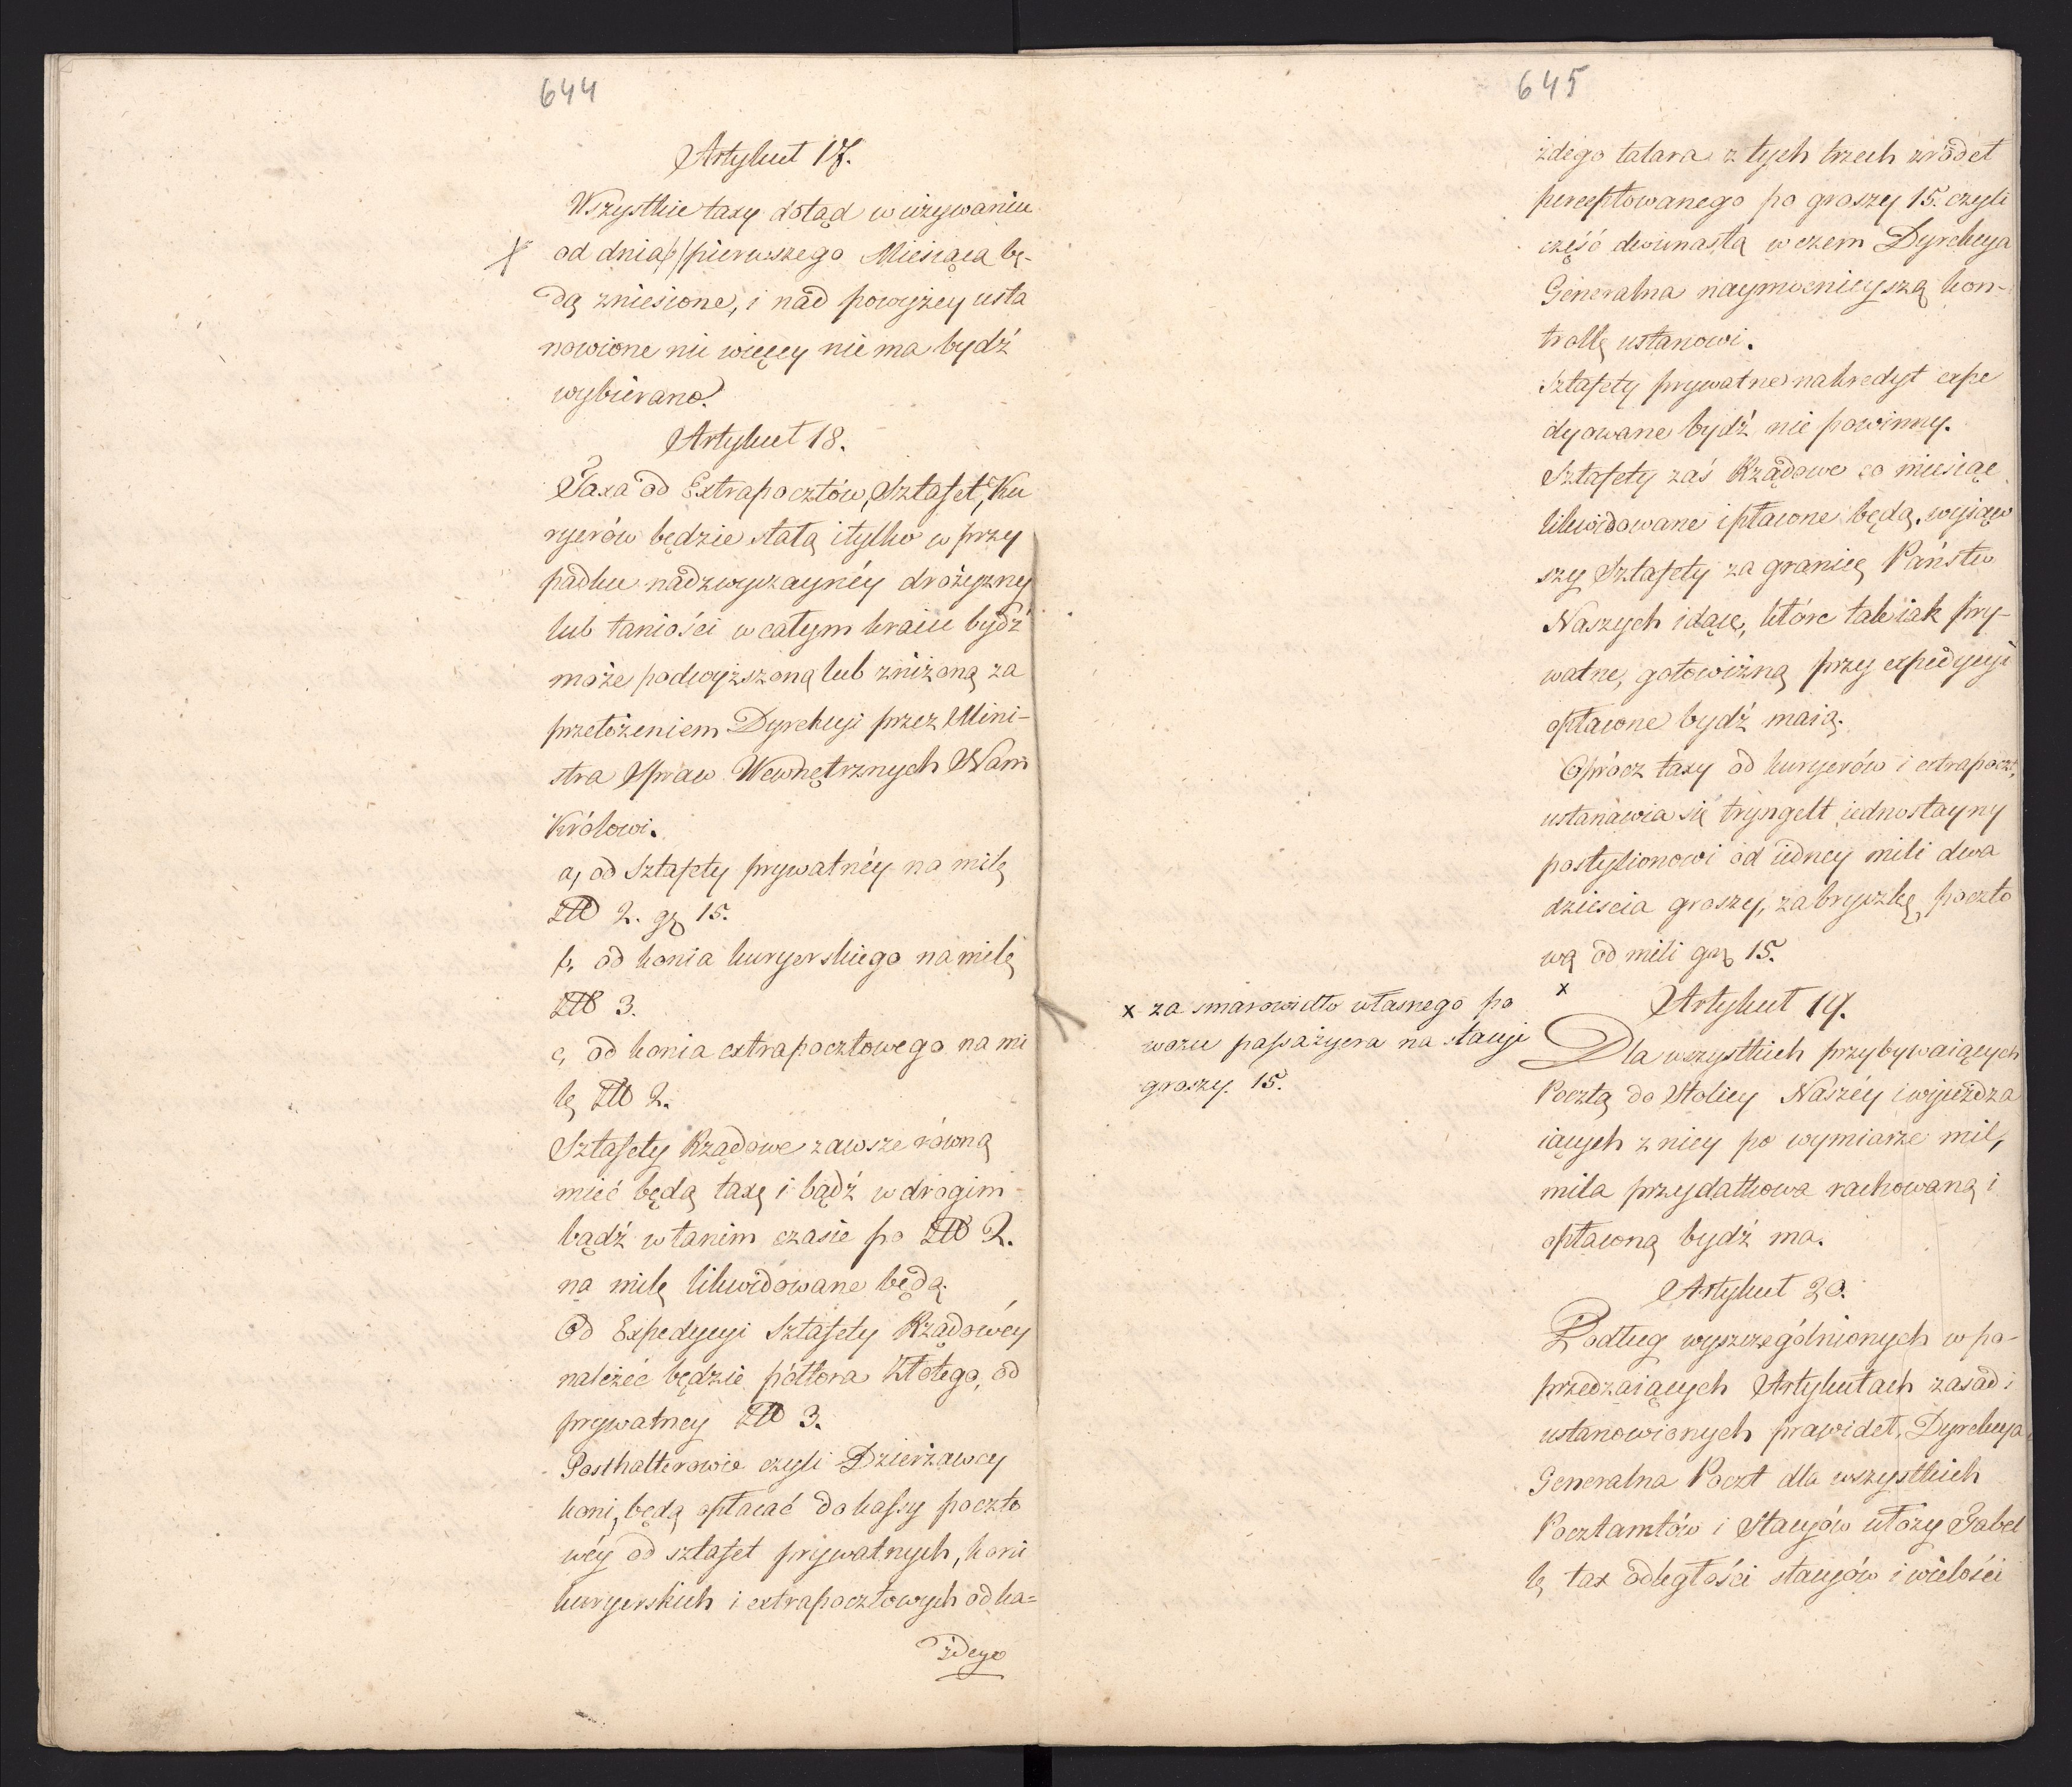 644
Artykuł 17.
Wszystkie taxy dotąd w używaniu
od dnia pierwszego Miesiąca bę-
dą zniesione, i nad powyżey usta
nowione nic więcey nie ma bydź
wybierano.
Artykuł 18.
Taxa od Extrapocztów, Sztafet, Ku
ryerów będzie stałą i tylko w przy
padku nadzwyczaynéy drożyzny
lub taniości w całym kraiu bydź
może podwyższoną lub zniżoną za
przełożeniem Dyrekcyi przez Mini-
stra Spraw Wewnętrznych Nam
Królowi.
a, od Sztafety prywatnéy na milę
Złł 2. gr 15.
b, od konia kuryerskiego na milę
Złł 3.
c, od konia extrapocztowego na mi
lę Złł 2.
Sztafety Rządowe zawsze równą
mieć będą taxę i bądź w drogim
bądź w tanim czasie po Złł 2.
na milę likwidowane będą.
Od Expedycyi Sztafety Rządowéy
należeć będzie półtora Złotego, od
prywatney Złł 3.
Posthalterowie czyli Dzierżawcy
koni, będą opłacać do kassy poczto
wéy od sztafet prywatnych, koni
kuryerskich i extrapocztowych od ka=
żdego
645
żdego talara z tych trzech źródeł
perceptowanego po groszy 15. czyli
część dwunastą w czem Dyrekcya
Generalna naymocnieyszą kon-
trollę ustanowi.
Sztafety prywatne na kredyt expe
dyowane bydź nie powinny.
Sztafety zaś Rządowe co miesiąc
likwidowane i płacone będą, wyiąw
szy Sztafety za granicę Państw
Naszych idące, które tak iak pry-
watne, gotowizną przy expedycyi
opłacone bydź maią.
Oprócz taxy od kuryerów i extrapoczt,
ustanawia się tryngelt iednostayny
postylionowi od iedney mili dwa
dzieścia groszy, za bryczkę poczto
wą od mili gr 15.
x
x za smarowidło własnego po
wozu passażyera na stacyi
groszy. 15.
Artykuł 19.
Dla wszystkich przybywaiących
Pocztą do Stolicy Naszéy i wyieżdża
iących z niey po wymiarze mil,
mila przydatkowa rachowaną i
opłaconą bydź ma.
Artykuł 20.
Podług wyszczególnionych w po-
przedzaiących Artykułach zasad i
ustanowionych prawideł, Dyrekcya
Generalna Poczt dla wszystkich
Pocztamtów i Stacyów ułoży Tabel
lę tax odległości stacyów i wielości